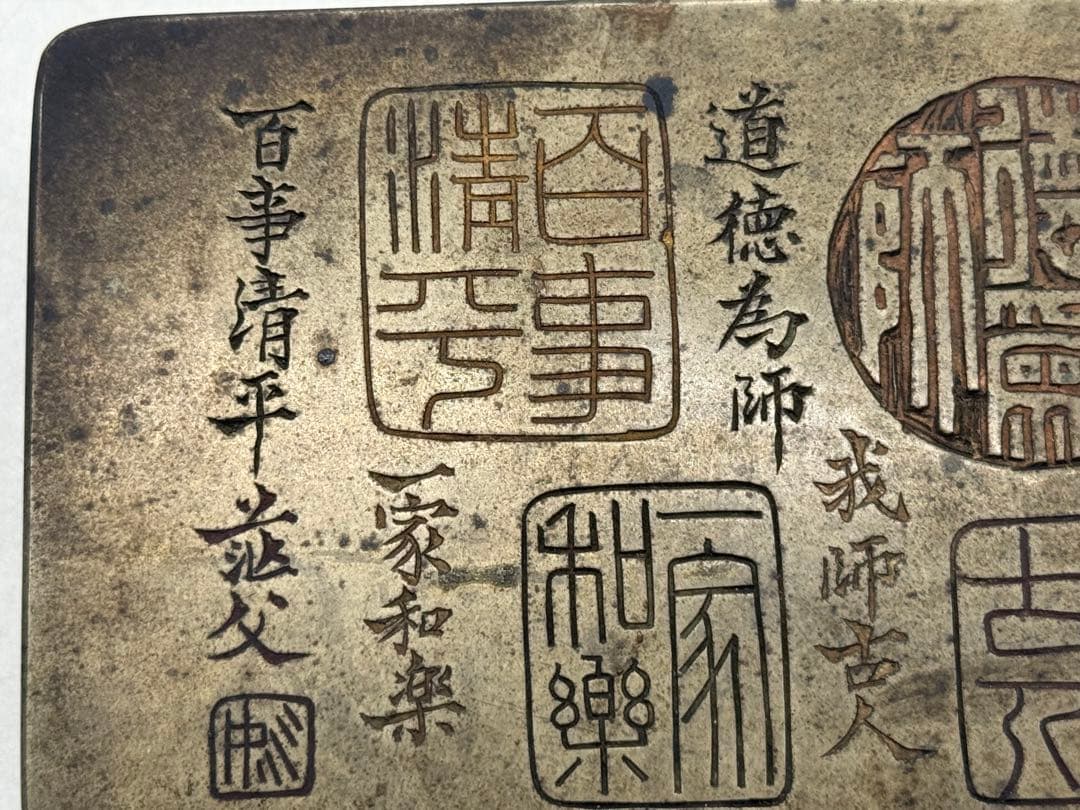 道德為師
我師古人
百事清平
一家和樂
一家和樂
百事清平 茫父